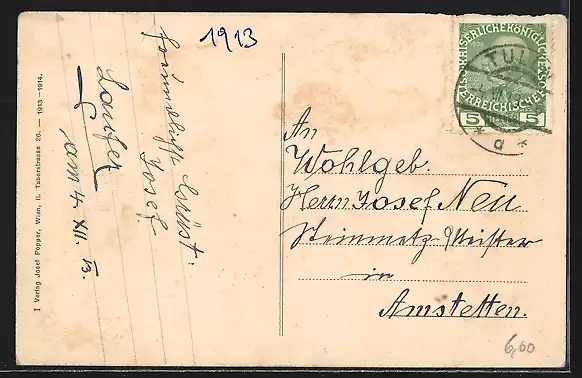 1913
freundlichst Grüßt
Josef
Laufer
am 4. XII. 13.
I Verlag Josef Popper, Wien, II. Taborstrasse 26. — 1913–1914.
KAISERLICHE KÖNIGLICHE
ÖSTERREICHISCHE
5 5
TULLN
* a *
An
Wohlgeb.
Herrn Josef Neu
Steinmetz Meister
in
Amstetten.
6,00